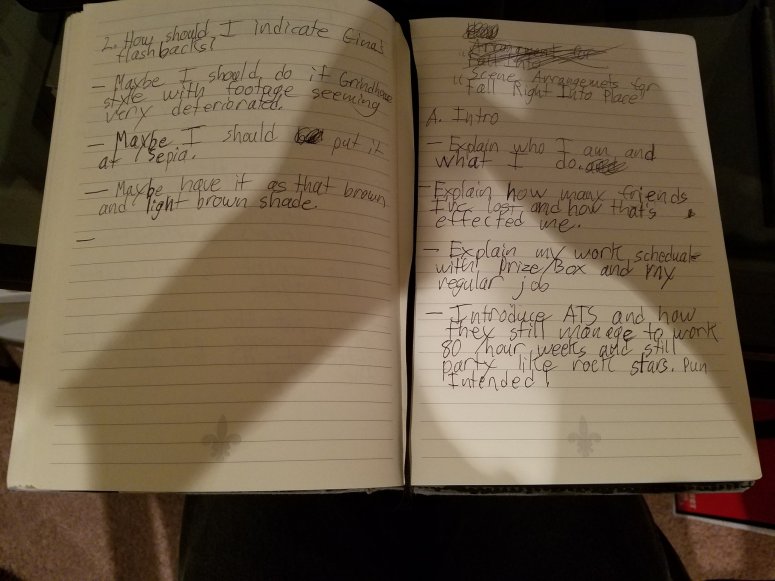 2. How should I indicate Gina's
flashbacks?
- Maybe I should do it Grindhouse
style with footage seeming
very deteriorated.
- Maybe I should put it
at sepia.
- Maybe have it as that brown
and light brown shade.
-
Arrangement for
Fall Into
"Scene Arrangemets for
Fall Right Into Place"
A. Intro
- Explain who I am and
what I do.
- Explain how many friends
I've lost and how that's
effected me.
- Explain my work schedule
with Prize/Box and my
regular job
- Introduce ATS and how
they still manage to work
80 hour weeks and still
party like rock stars. Pun
Intended!